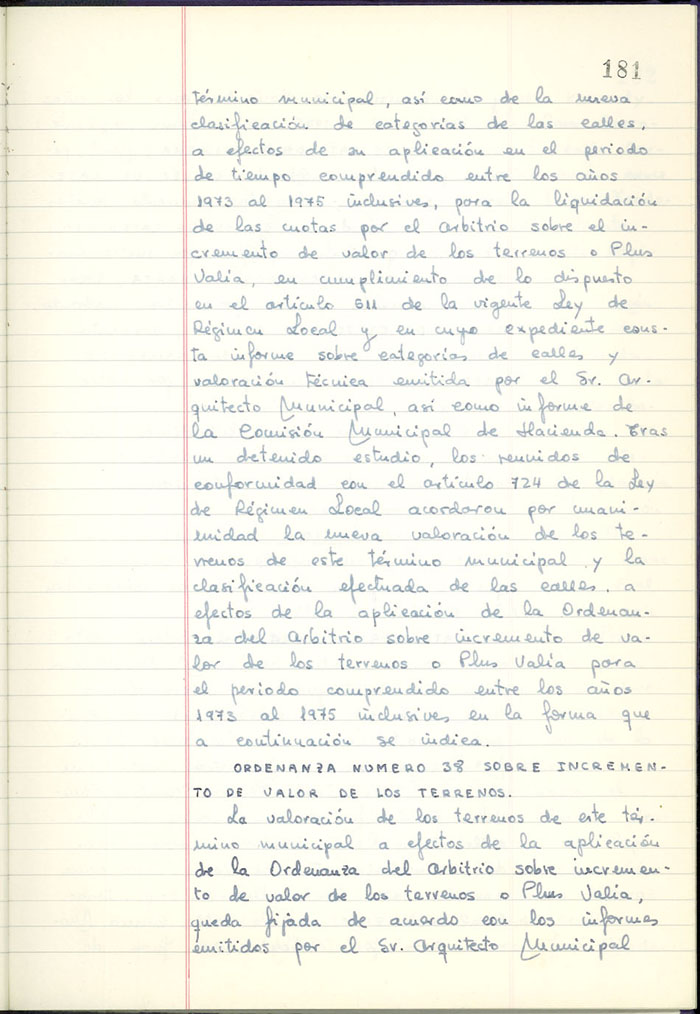 181
término municipal, así como de la nueva
clasificación de categorías de las calles,
a efectos de su aplicación en el periodo
de tiempo comprendido entre los años
1973 al 1975 inclusives, para la liquidación
de las cuotas por el arbitrio sobre el in-
cremento de valor de los terrenos o Plus
Valía, en cumplimiento de lo dispuesto
en el artículo 511 de la vigente Ley de
Régimen Local y en cuyo expediente cons-
ta informe sobre categorías de calles y
valoración técnica emitida por el Sr. Ar-
quitecto Municipal, así como informe de
la Comisión Municipal de Hacienda. Tras
un detenido estudio, los reunidos de
conformidad con el artículo 724 de la Ley
de Régimen Local acordaron por unani-
midad la nueva valoración de los te-
rrenos de este término municipal y la
clasificación efectuada de las calles, a
efectos de la aplicación de la Ordenan-
za del arbitrio sobre incremento de va-
lor de los terrenos o Plus Valía para
el periodo comprendido entre los años
1973 al 1975 inclusives en la forma que
a continuación se indica.
ORDENANZA NUMERO 38 SOBRE INCREMEN-
TO DE VALOR DE LOS TERRENOS.
La valoración de los terrenos de este tér-
mino municipal a efectos de la aplicación
de la Ordenanza del arbitrio sobre incremen-
to de valor de los terrenos o Plus Valía,
queda fijada de acuerdo con los informes
emitidos por el Sr. Arquitecto Municipal